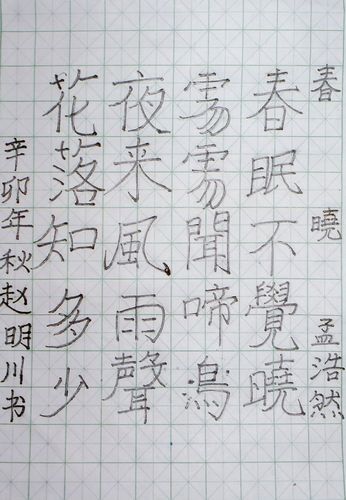 春曉 孟浩然
春眠不覺曉
聞啼鳥
夜来風雨聲
花落知多少
辛卯年秋赵明川书